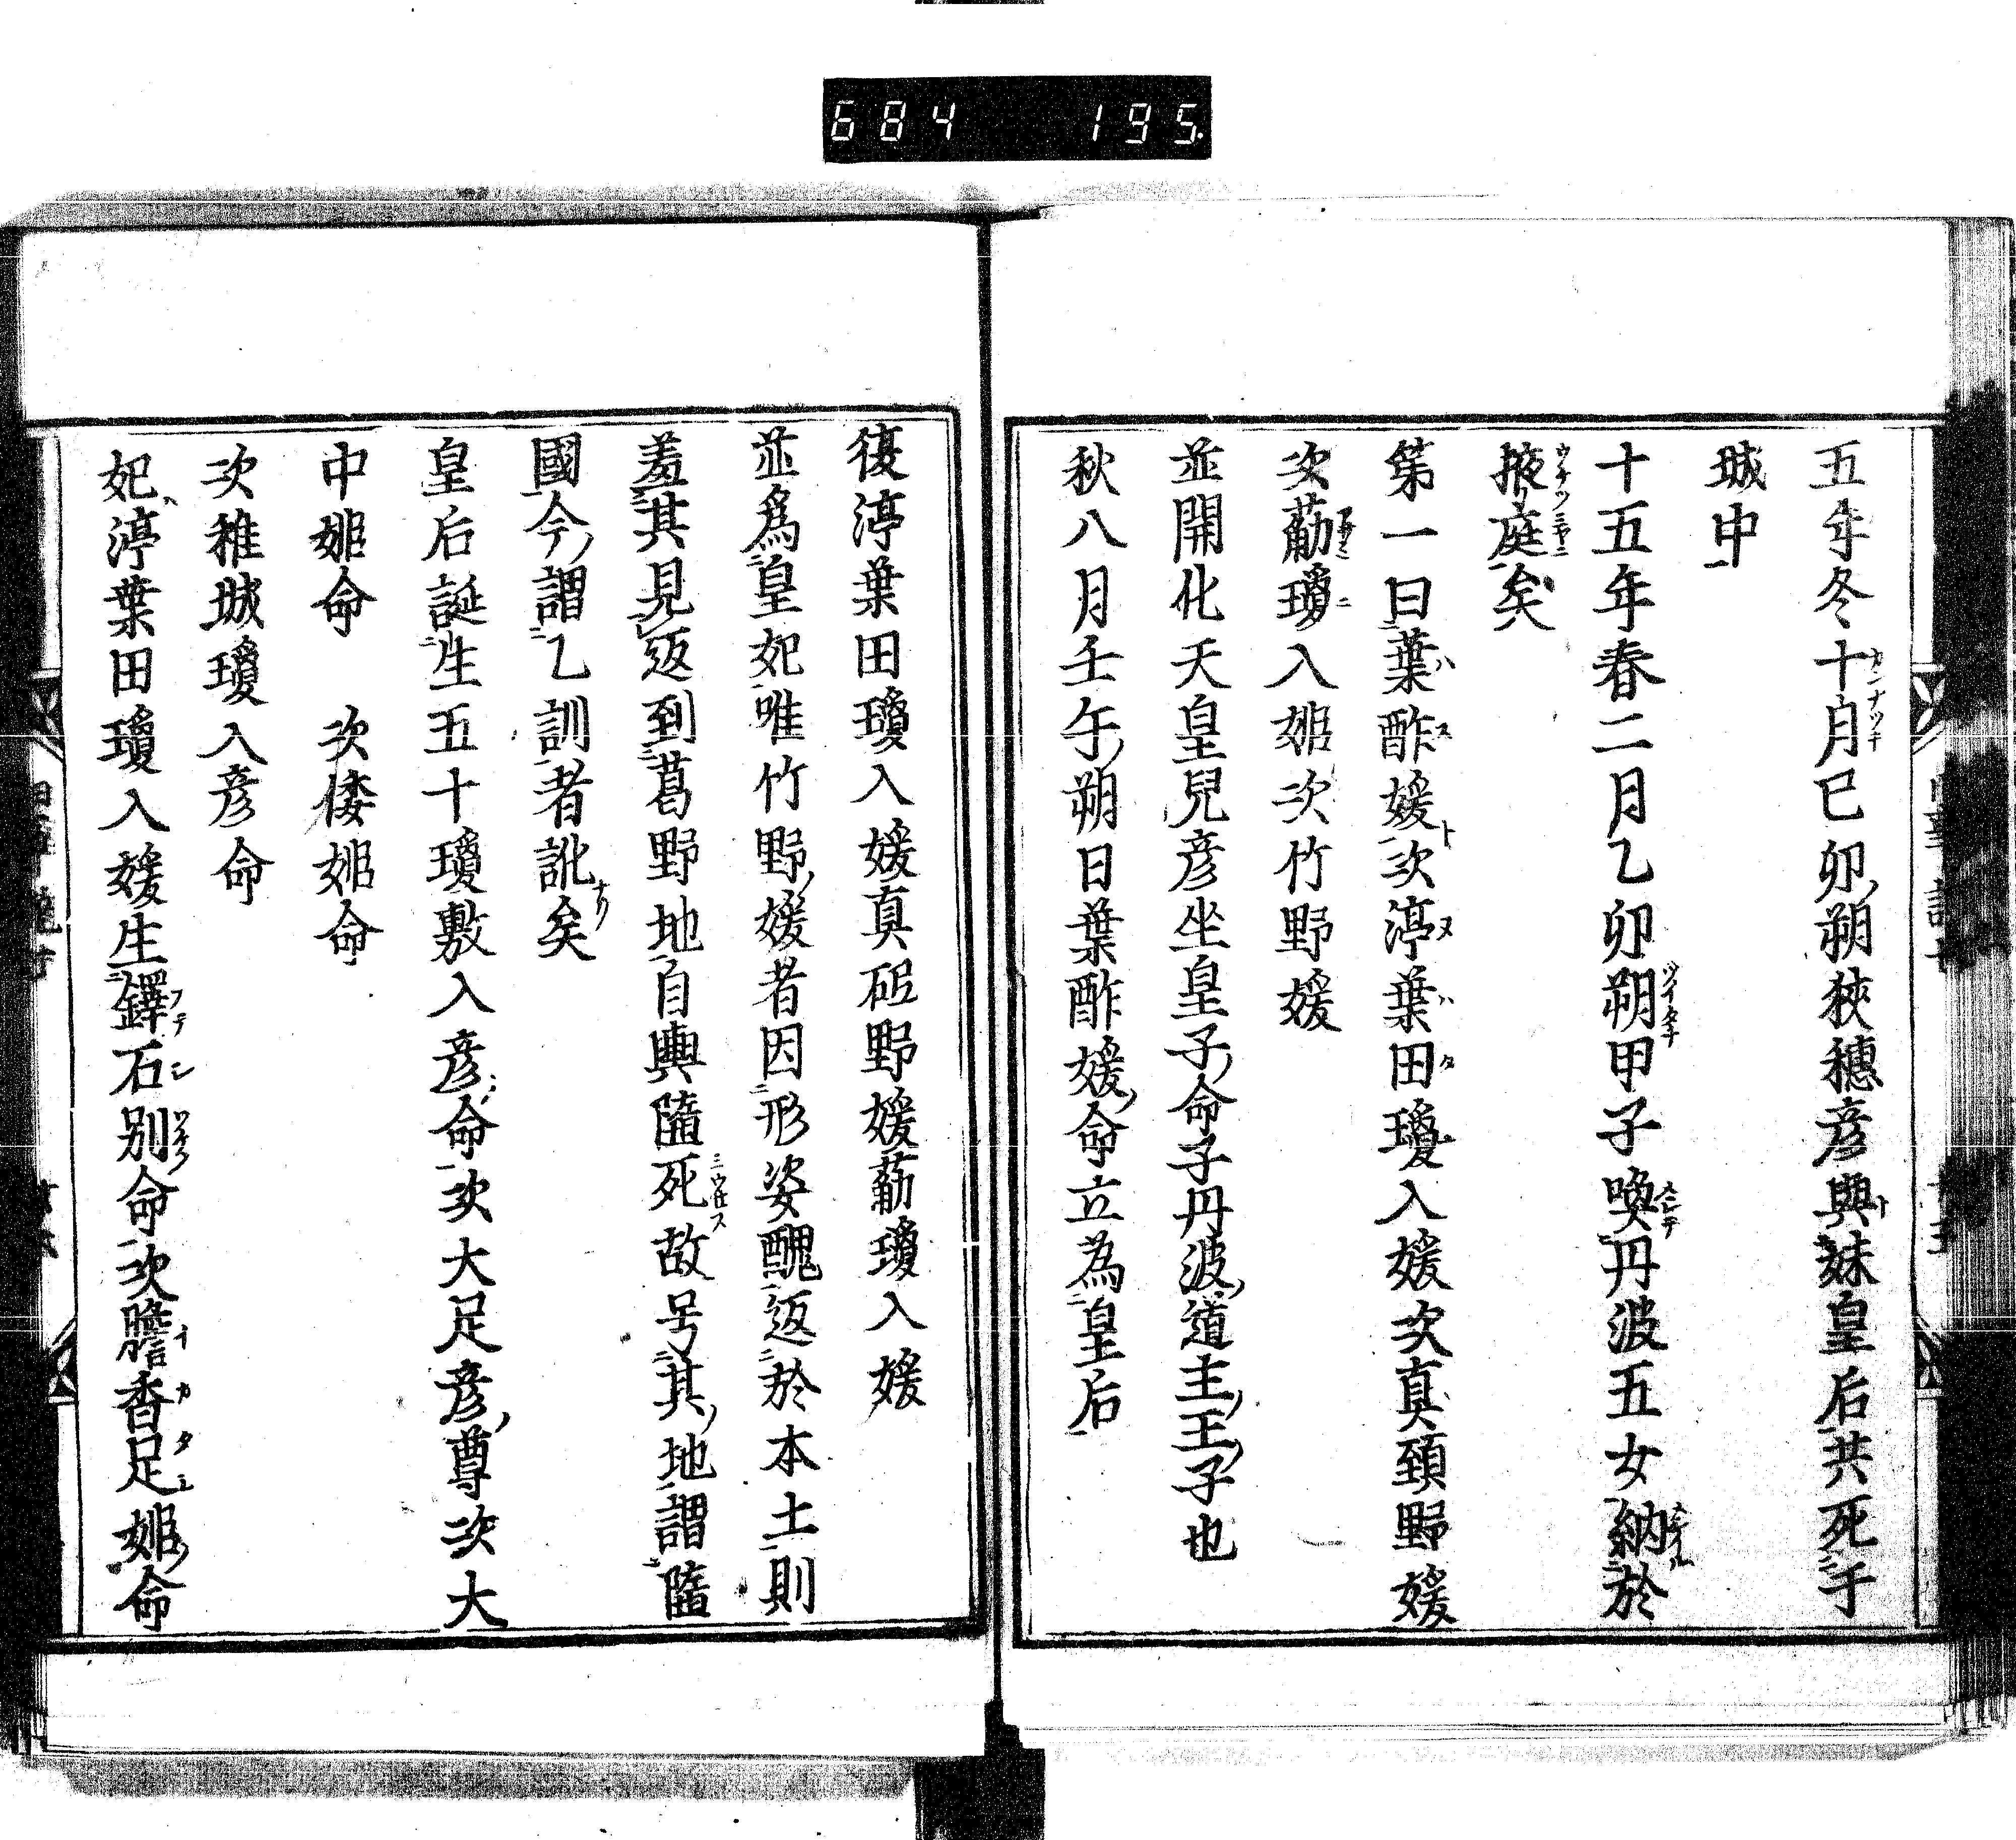 684 195
五年冬十月已卯朔狹穗彦與妹皇后共死于
城中
十五年春二月乙卯朔甲子喚丹波五女納於
掖庭矣
第一曰葉酢媛次渟葉田瓊入媛次真頚野媛
次葪瓊入姫次竹野媛
並開化天皇兒彦坐皇子命子丹波道主王子也
秋八月壬午朔日葉酢媛命立為皇后
復渟葉田瓊入媛真砥野媛葪瓊入媛
並為皇妃唯竹野媛者因形姿醜返於本土則
羞其見返到葛野地自輿隨死故号其地謂隨
國今謂乙訓者訛矣
皇后誕生五十瓊敷入彦命次大足彦尊次大
中姫命 次倭姫命
次稚城瓊入彦命
妃渟葉田瓊入媛生鐸石別命次膽香足姫命